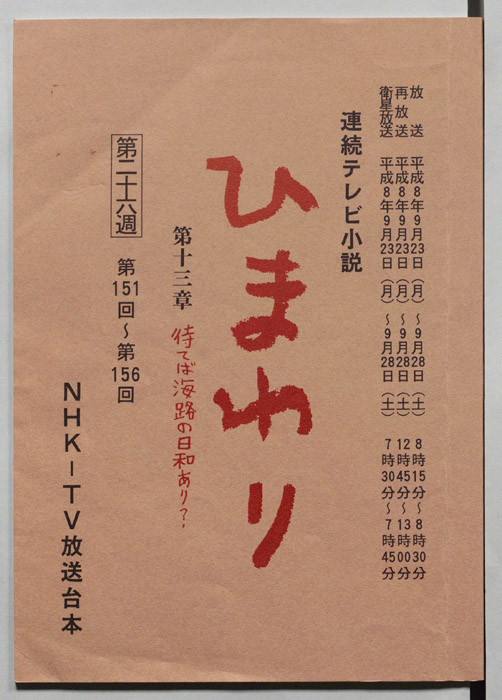 放送 平成8年9月23日(月)~9月28日(土) 8時15分~8時30分
再放送 平成8年9月23日(月)~9月28日(土) 12時45分~13時00分
衛星放送 平成8年9月23日(月)~9月28日(土) 7時30分~7時45分
連続テレビ小説
ひまわり
第十三章 待てば海路の日和あり?
第二十六週 第151回~第156回
NHK-TV放送台本